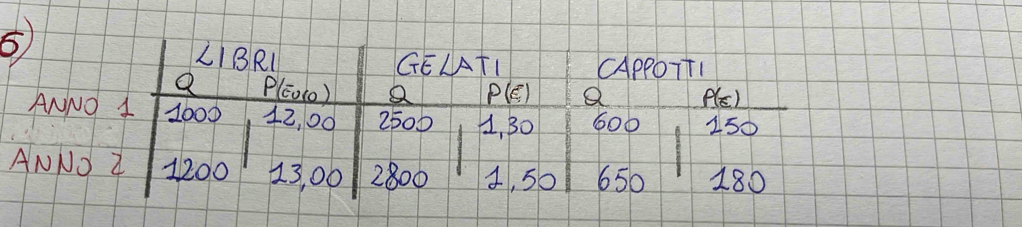 5)
LIBRI GELATI CAPPOTTI
Q P(Euro) Q P(€) Q P(€)
ANNO 1 1000 12,00 2500 1,30 600 150
ANNO 2 1200 13,00 2800 1,50 650 180